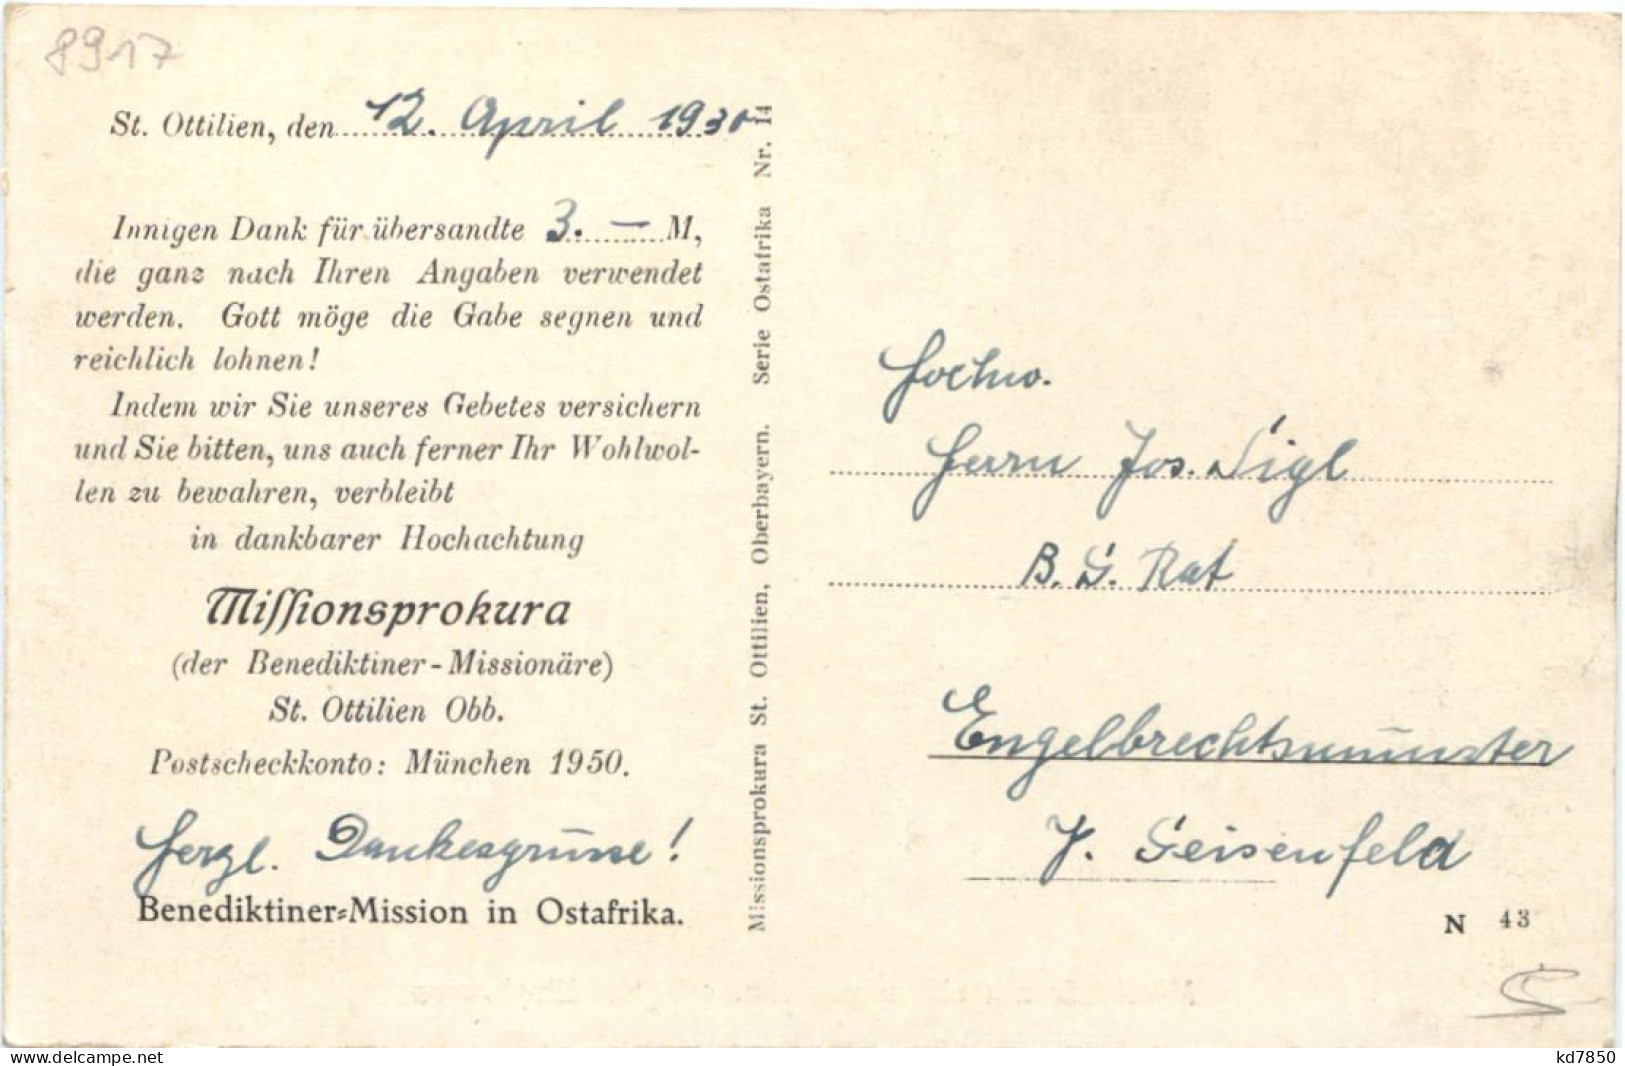 8917
St. Ottilien, den 12. April 1930
Innigen Dank für übersandte 3. — M,
die ganz nach Ihren Angaben verwendet
werden. Gott möge die Gabe segnen und
reichlich lohnen!
Indem wir Sie unseres Gebetes versichern
und Sie bitten, uns auch ferner Ihr Wohlwol-
len zu bewahren, verbleibt
in dankbarer Hochachtung
Missionsprokura
(der Benediktiner-Missionäre)
St. Ottilien Obb.
Postscheckkonto: München 1950.
Herzl. Dankesgrüsse!
Benediktiner-Mission in Ostafrika.
Missionsprokura St. Ottilien, Oberbayern. Serie Ostafrika Nr. 14
Hochw.
Herrn Jos. Sigl
B. G. Rat
Engelbrechtsmünster
P. Geisenfeld
N 43
www.delcampe.net
kd7850